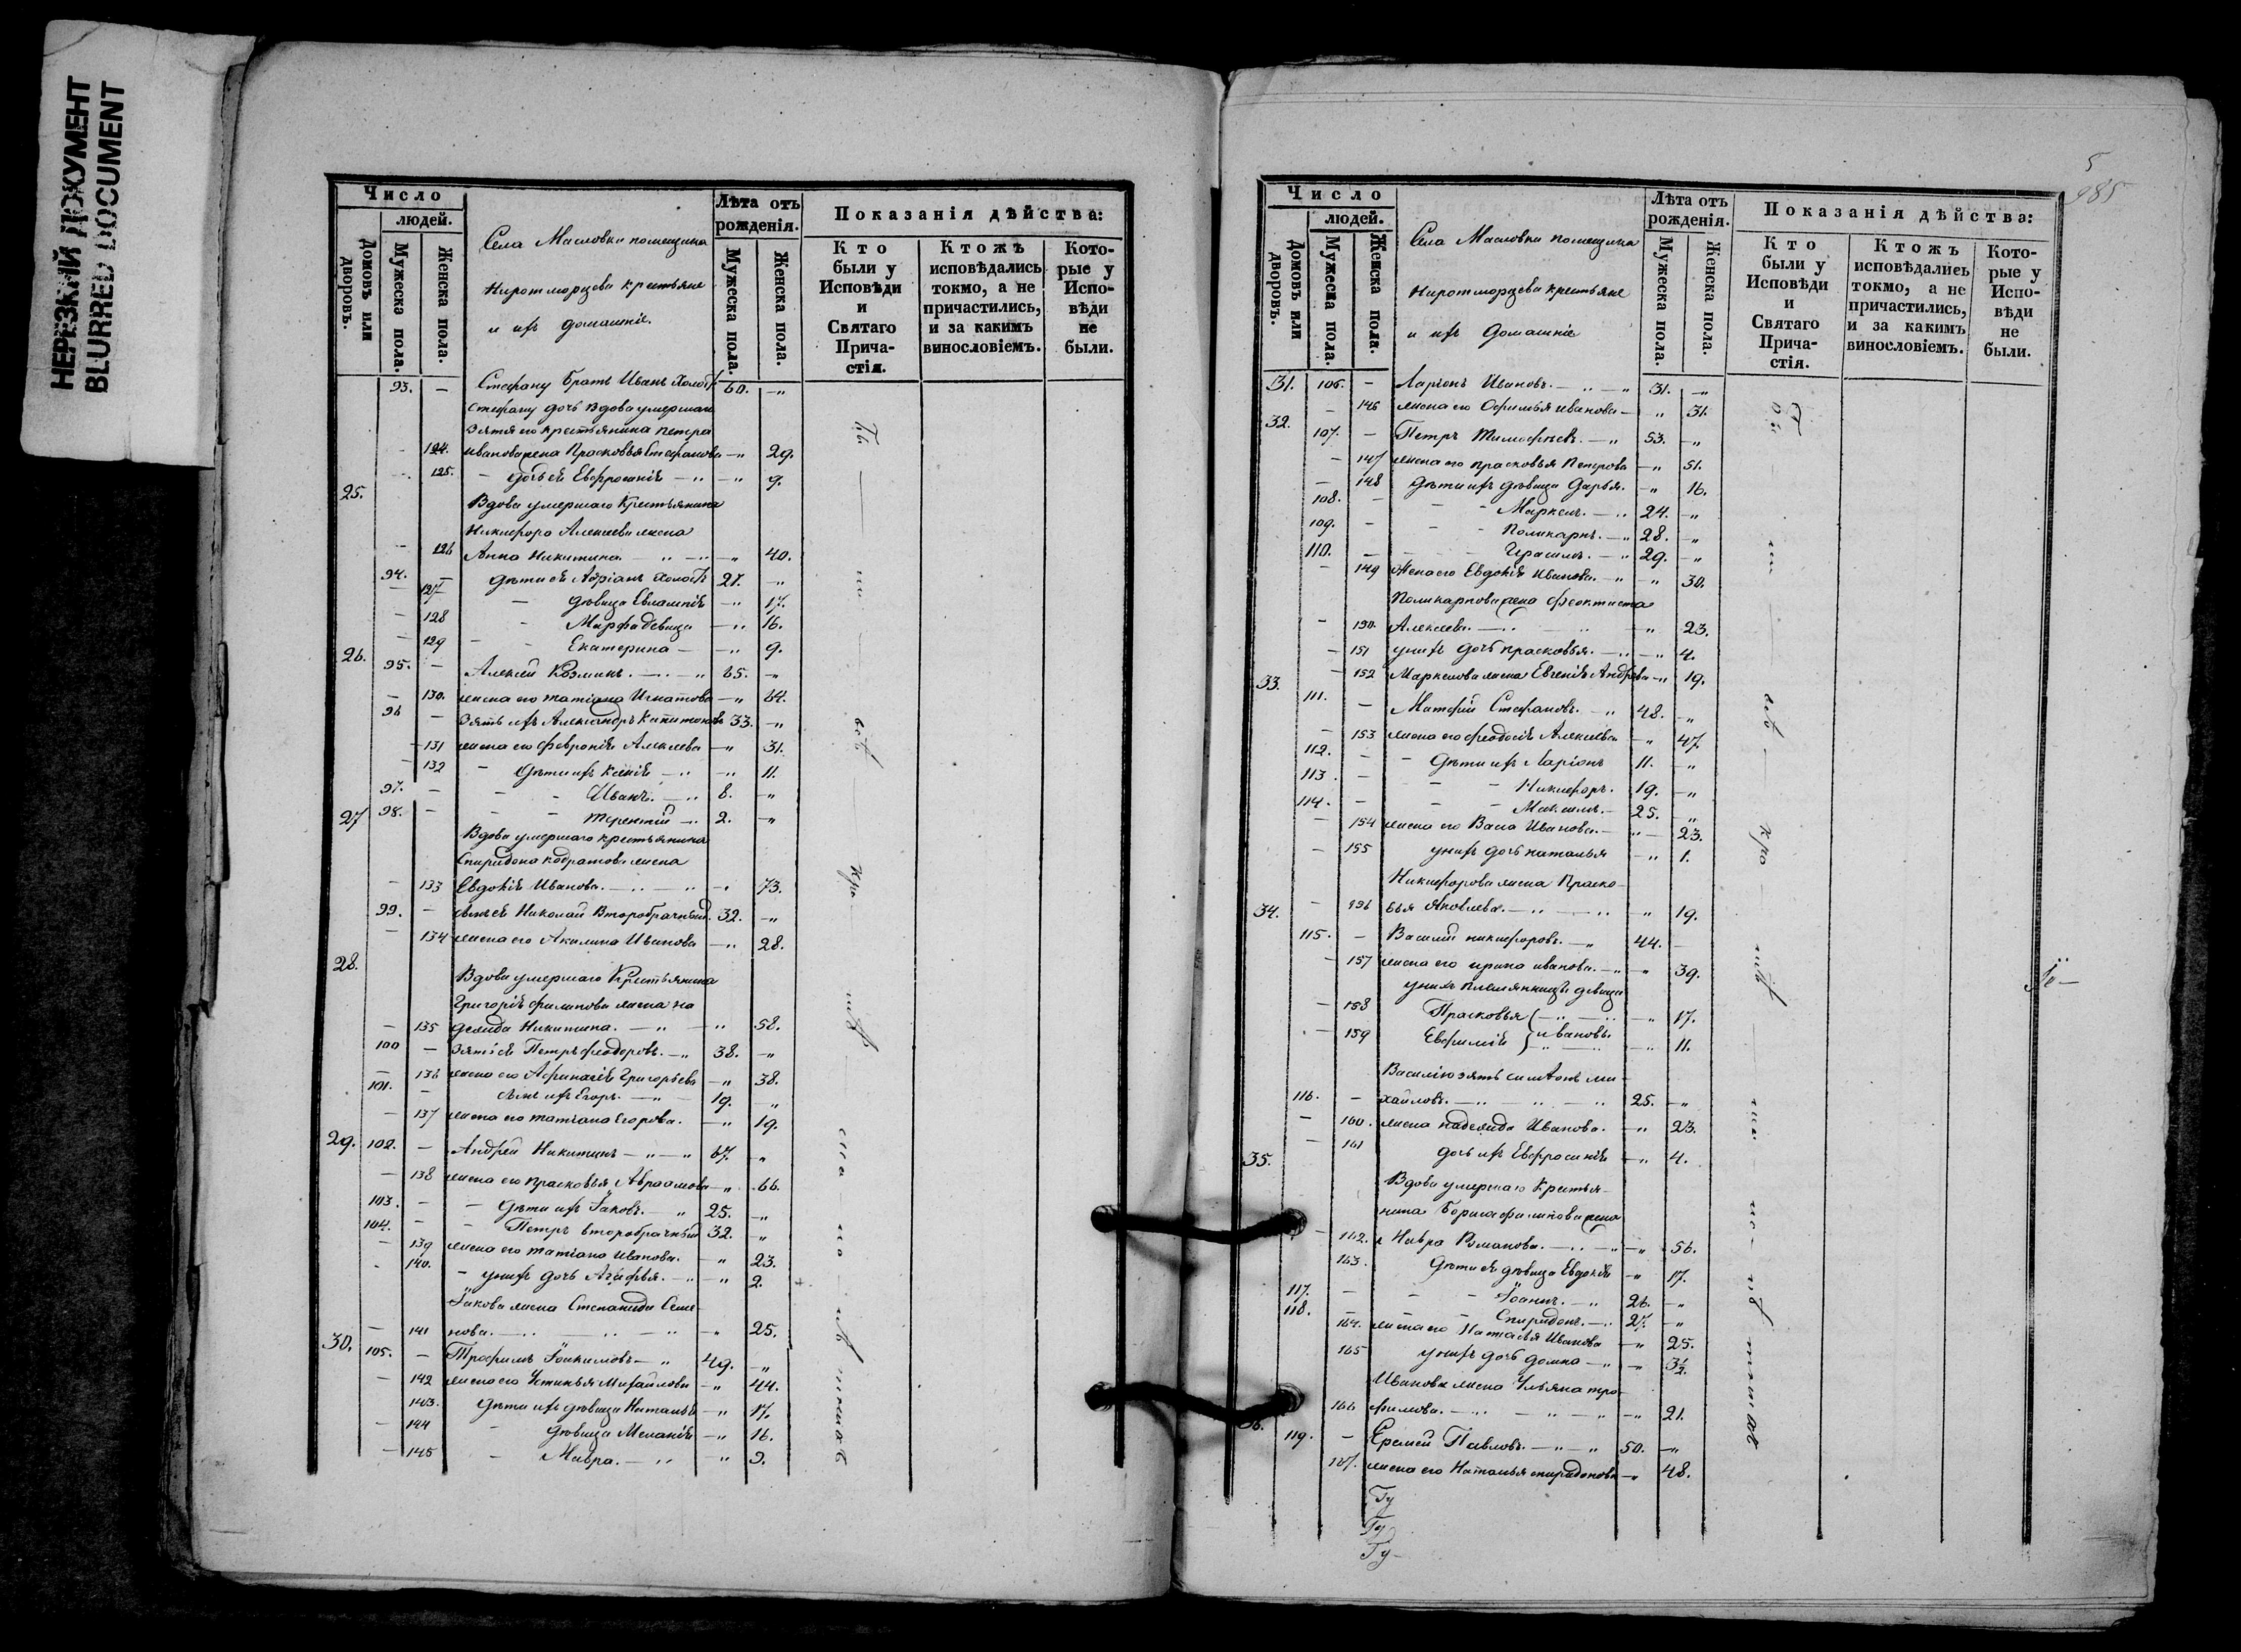 НЕРЕЗКИЙ ДОКУМЕНТ
BLURRED DOCUMENT
Число
людей.
Домовъ или дворовъ.
Мужеска пола.
Женска пола.
Села Масловки помещика
крестьяне
и ихъ домашніе.
Лѣта отъ рожденія.
Мужеска пола.
Женска пола.
Показанія дѣйства:
Кто были у Исповѣди и Святаго Причастія.
Ктожъ исповѣдались токмо, а не причастились, и за какимъ винословіемъ.
Которые у Исповѣди не были.
93. — Стефану братъ Иванъ холостъ 60. —"
Стефану дочь вдова умершаго
зятя его крестьянина петра
124. иванова жена Прасковья Стефанова —" 29.
— 125. — дочь ея Евфросинія —" —" 9.
25.
Вдова умершаго Крестьянина
Никифора Алексеева жена
— 126 Анна Никитина —" —" —" 40.
94. — дѣти ея Адріанъ холостъ 27. —"
— 127 — дѣвица Евлампія —" 17.
— 128 - Марфа девица —" 16.
— 129 - - Екатерина — —" 9.
26.
95. — Алексей Козминъ. —" —" 65. —"
— 130. жена его татіана Игнатова —" 64.
96 — зять ихъ Александръ Капитоновъ 33. —"
— 131 жена его февронія Алексеева —" 31.
— 132 - дѣти ихъ Ксенія —" —" 11.
97. — - - Иванъ. —" 8. —"
27 98. — - - терентій —" 2. —"
Вдова умершаго крестьянина
Спиридона кодратова жена
— 133 Евдокія Иванова. —" —" —" 73.
99. — сынъ ея Николай Второбрачный. 32. —"
— 134 жена его Акилина Иванова —" 28.
28.
Вдова умершаго Крестьянина
Григорія филипова жена на
— 135 дежида Никитина. —" —" 58.
100 — зять ея Петръ феодоровъ. —" 38. —"
— 136 жена его Афанасія Григорьева —" 38.
101. — сынъ ихъ Егоръ. —" 19. —"
— 137 жена его татіана Егорова. —" 19.
29. 102. — Андрей Никитинъ —" —" 67. —"
— 138 жена его прасковья Авраамова —" 66.
103. — — дѣти ихъ Іаковъ. —" 25. —"
104. — — Петръ второбрачный 32. —"
— 139 жена его татіана иванова. —" 23.
140. - у нихъ дочь Агафья. —" —" 2.
Іакова жена Степанида Семе-
— 141 нова. —" —" —" 25.
30. 105. — Трофимъ Іоакимовъ —" 49. —"
— 142 жена его Устинья Михайлова —" 44.
143. дѣти ихъ дѣвица Наталья —" 17.
— 144 - дѣвица Меланія —" 16.
— 145 - Мавра. —" —" 3.
5
985
Число
людей.
Домовъ или дворовъ.
Мужеска пола.
Женска пола.
Села Масловки помещика
крестьяне
и ихъ домашніе
Лѣта отъ рожденія.
Мужеска пола.
Женска пола.
Показанія дѣйства:
Кто были у Исповѣди и Святаго Причастія.
Ктожъ исповѣдались токмо, а не причастились, и за какимъ винословіемъ.
Которые у Исповѣди не были.
31. 106. — Ларіонъ Ивановъ. —" —" 31. —"
— 146 жена его Офимья иванова — " 31.
32.
107. — Петръ тимофѣевъ. —" 53. —"
— 147 жена его прасковья Петрова —" 51.
— 148 дѣти ихъ дѣвица Дарья. —" 16.
108. — - - Маркелъ. —" 24. —"
109. — - - Поликарпъ. —" 28. —"
110. — - - Герасимъ. —" 29. —"
— 149 жена его Евдокія Иванова. —" —" 30.
Поликарпова жена феоктиста
— 150. Алексеева. —" —" —" 23.
— 151 у нихъ дочь прасковья. —" —" 4.
— 152 Маркелова жена Евгенія Андрева —" 19.
33.
111. — Матфій Стефановъ. —" 48. —"
— 153 жена его феодосія Алексеева —" 47.
112. — - дѣти ихъ Ларіонъ 11. —"
113. — - - Никифоръ. 19. —"
114. — - - Максимъ. — 25. —"
— 154 жена его Васса Иванова. — —" 23.
— 155 у нихъ дочь наталья —" 1.
Никифорова жена Праско-
34. — 156 вья Яковлева. —" —" —" 19.
115. — Василій никифоровъ. —" 44. —
— 157 жена его ирина иванова. —" —" 39.
у нихъ племянницы девицы
— 158 Прасковья —" —" 17.
— 159 Евфимія } ивановы —" 11.
Василію зять симеонъ ми-
116. — хайловъ. —" —" —" 25. —"
— 160. жена надежида Иванова. —" 23.
— 161 дочь ихъ Евфросинія —" 4.
35.
Вдова умершаго Крестья-
нина Бориса филипова жена
— 162. Мавра Романова. —" —" —" 56.
163. дѣти ея дѣвица Евдокія —" 17.
117. — - - Іоаннъ. —" 26. —"
118. — - - Спиридонъ. —" 27. —"
164. жена его Наталья Иванова —" 25.
165 у нихъ дочь домна —" —" 3½.
Иванова жена Ульяна тро-
166 фимова. —" —" —" —" 21.
36.
119. — Еремей Павловъ. —" —" 50. —"
167. жена его Наталья спиридонова —" 48.
Ту
Ту
Ту-